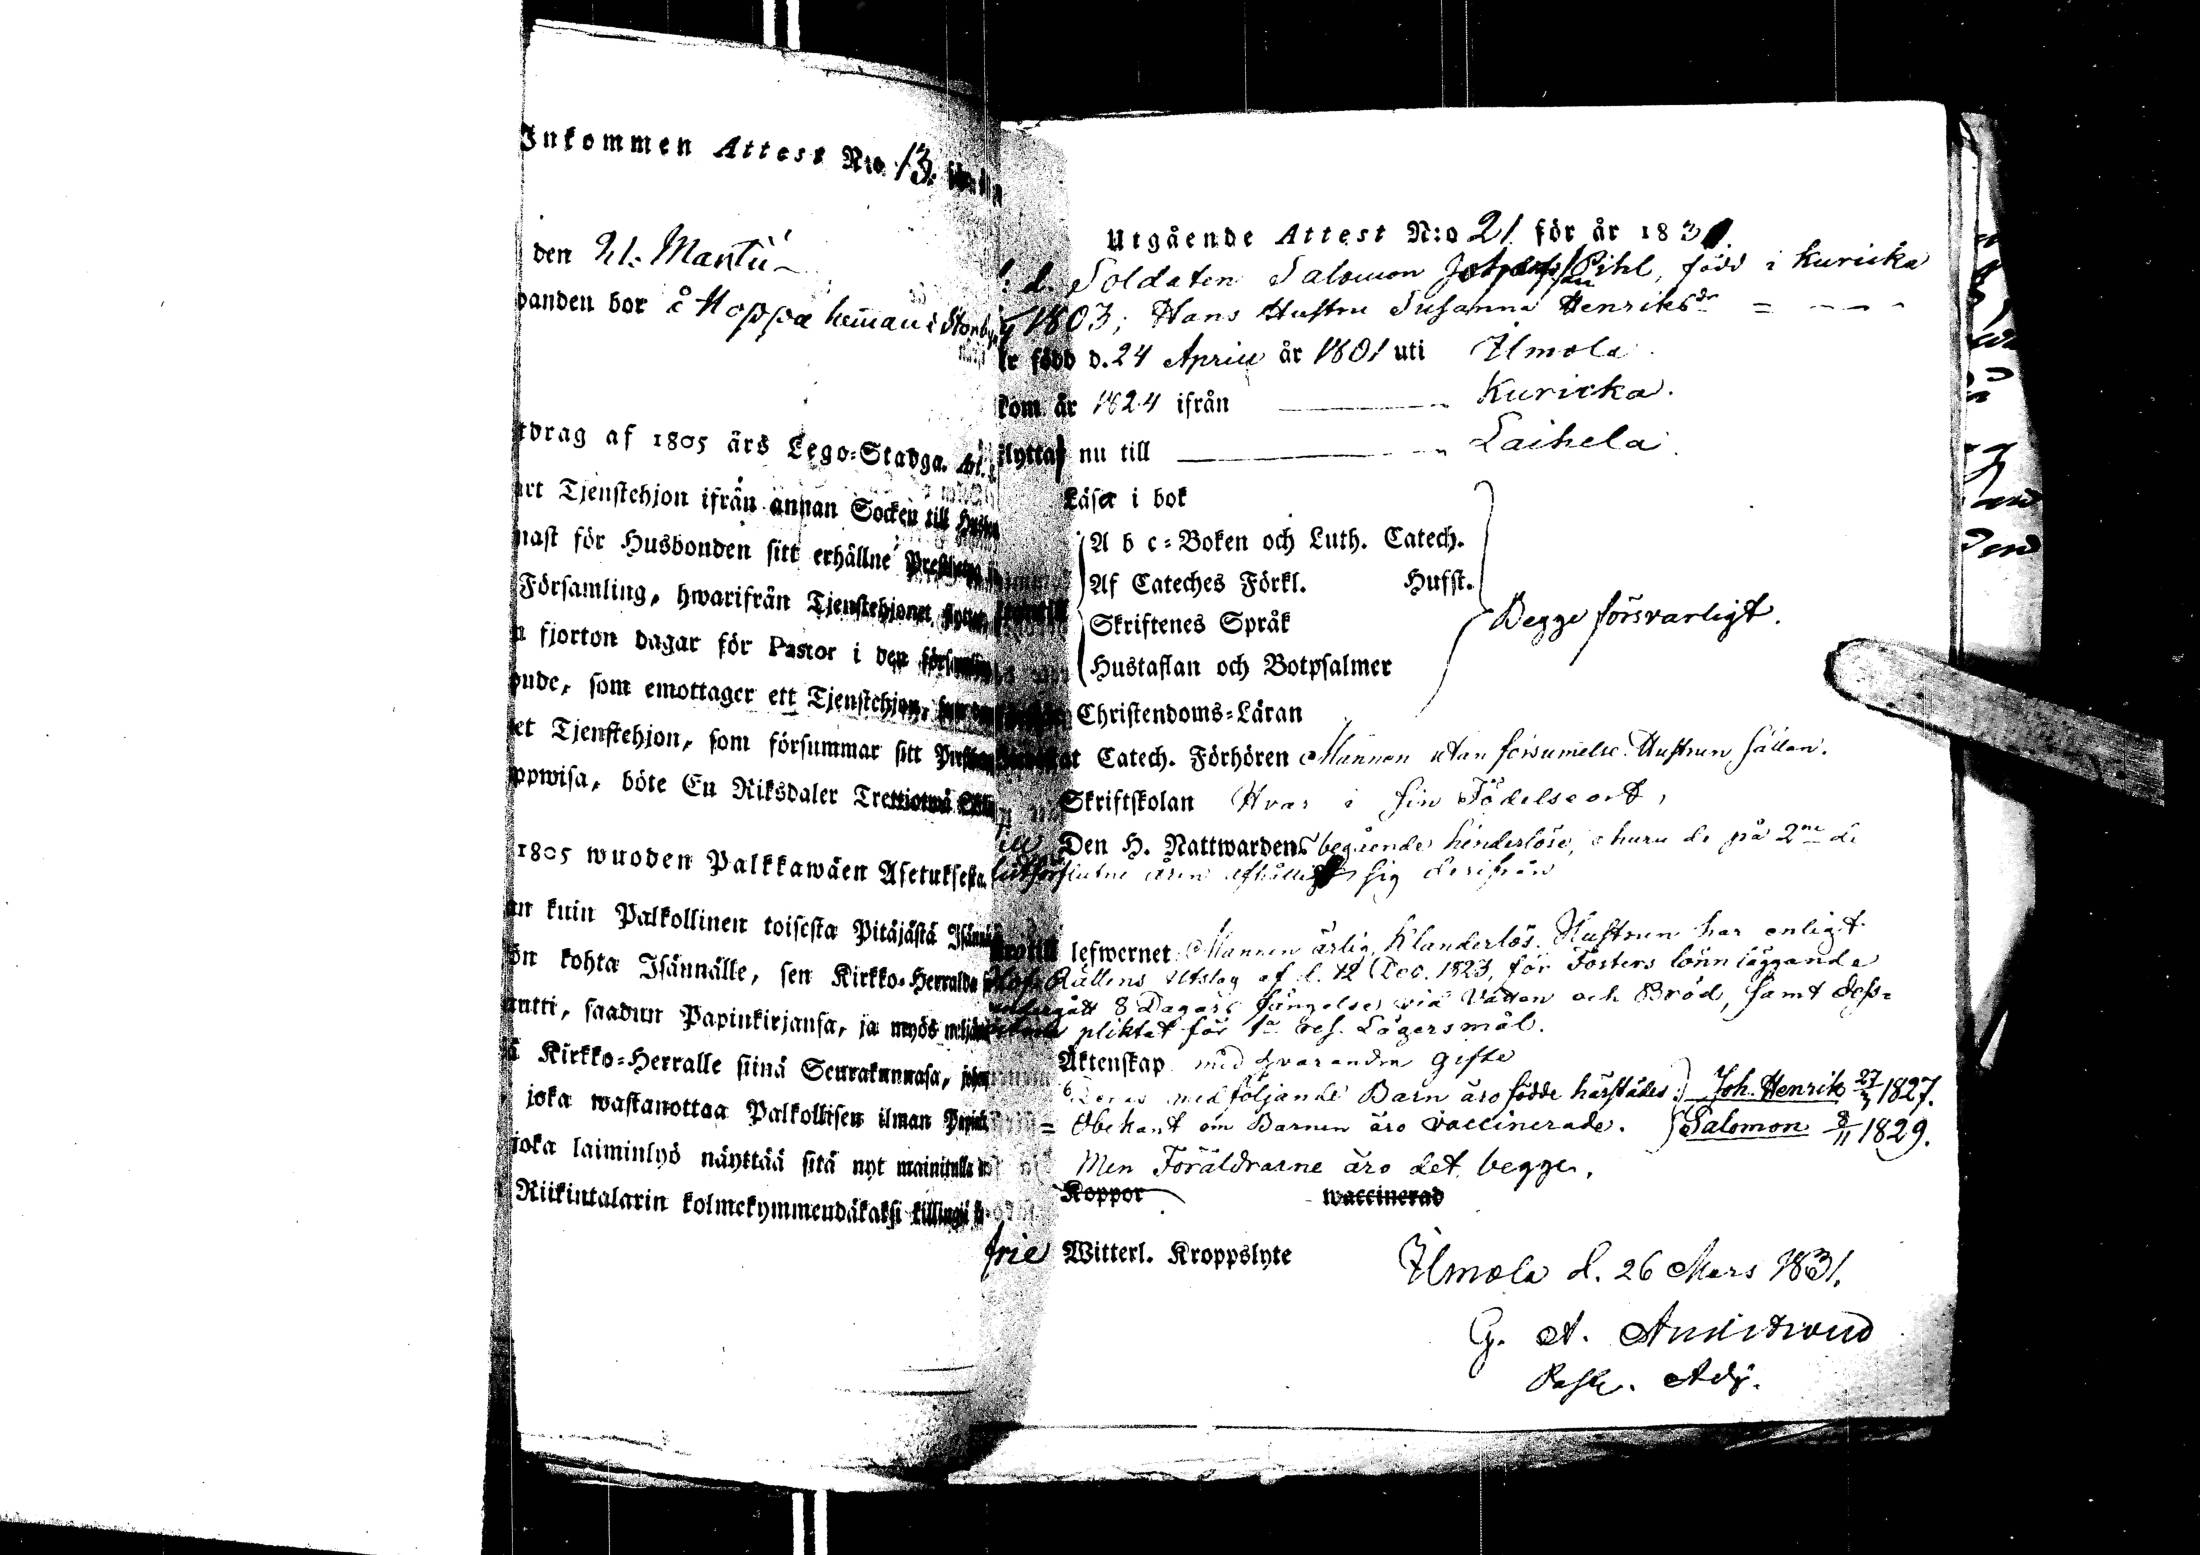 Inkommen Attest N:o 13.
den 21. Martii
banden bor å Hoppa heman i Storby
tdrag af 1805 års Lego-Stadga.
art Tjenstehjon ifrån annan Socken till
nast för Husbonden sitt erhållne
Församling, hwarifrån Tjenstehjonet
n fjorton dagar för Pastor i den
bude, som emottager ett Tjenstehjon,
et Tjenstehjon, som försummar sitt
ppwisa, böte En Riksdaler Trettiotwå
1805 wuoden Palkkawäen Asetuksesta
an kuin Palkollinen toisesta Pitäjästä
ön kohta Isännälle, sen Kirkko-Herralda
autti, saadun Papinkirjansa, ja myös
ä Kirkko-Herralle siinä Seurakunnasa,
joka wastanottaa Palkollisen ilman
joka laiminlyö näyttää sitä nyt mainitulla
Riikintalarin kolmekymmendäkaksi killingiä
Utgående Attest N:o 21 för år 1831.
f. d. Soldaten Salomon Pihl, född i Kuricka
1803; Hans Hustru Susanna Henriksdr
är född d. 24 April år 1801 uti Ilmola
kom år 1824 ifrån Kuricka.
flytta nu till Laihela.
Läser i bok
A b c-Boken och Luth. Catech.
Af Cateches Förkl. Hufst.
Skriftenes Språk
Begge försvarligt.
Hustaflan och Botpsalmer
Christendoms-Läran
Catech. Förhören Mannen utan försumelse. Hustrun sällan.
Skriftskolan Hvar i sin Födelseort,
Den H. Nattwarden begående hinderlöse, ehuru de på 2ne de
sig derifrån
lefwernet Mannen ärlig, klanderlös. Hustrun har enligt
Hofs Rättens Utslag af d. 12 Dec. 1823, för Fosters lönnläggande
undergått 8 Dagars fängelse vid Vatten och Bröd, samt dess=
pliktat för 1a res. Lägersmål.
Äktenskap med hvarandra gifte
Deras medföljande Barn äro födde härstädes: Joh. Henrik 27/3 1827.
Obekant om Barnen äro vaccinerade. Salomon 8/11 1829.
Men Föräldrarne äro det begge.
Koppor waccinerad
frie Witterl. Kroppslyte
Ilmola d. 26 Mars 1831.
G. A.
Past. Adj.